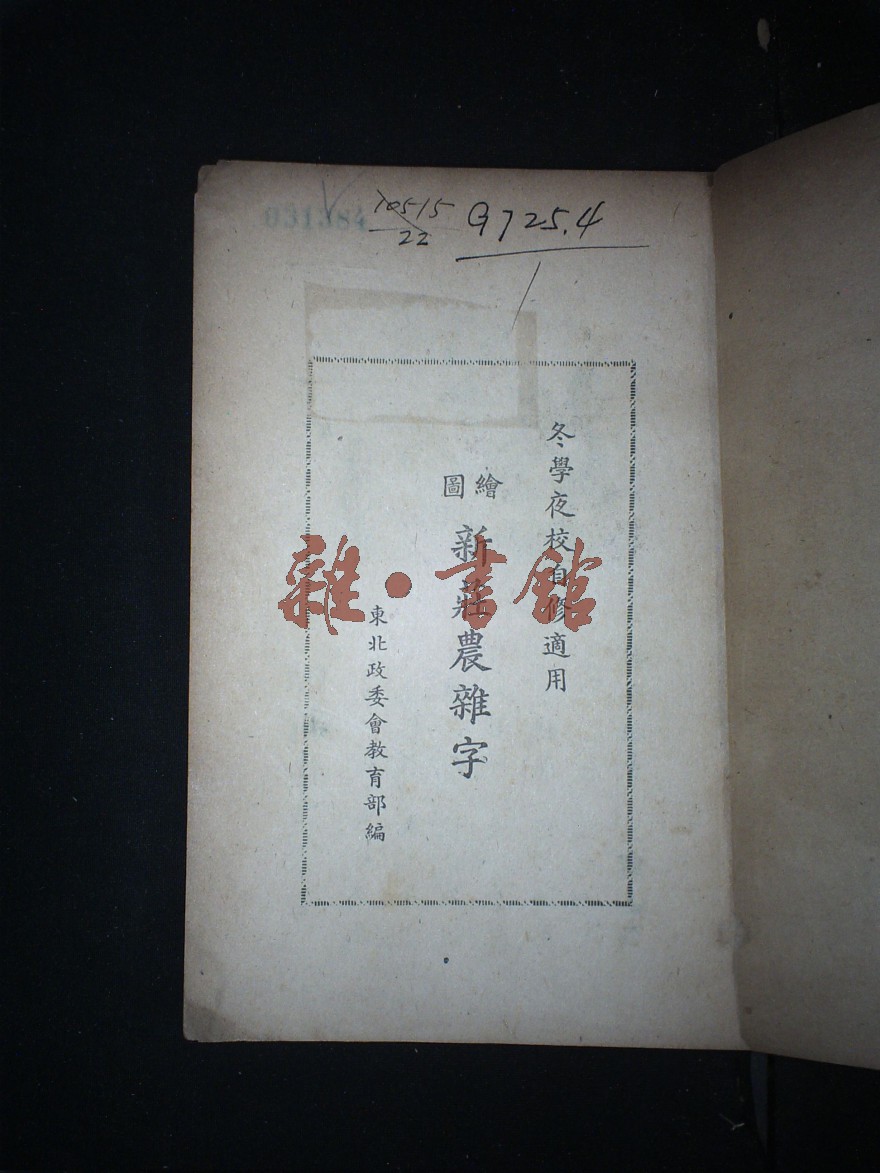 031384
10515
22
G725.4
冬學夜校自修適用
繪圖
新莊農雜字
東北政委會教育部編
雜·書館